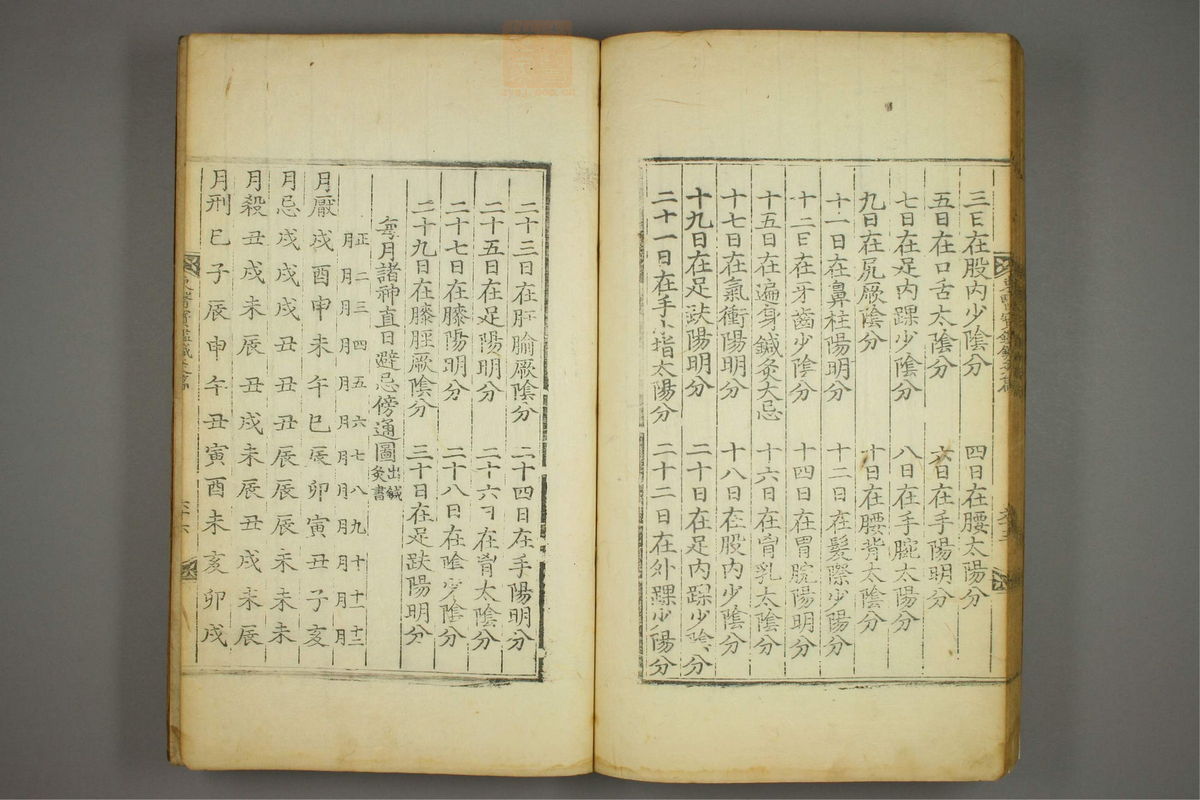 三日在股內少陰分　四日在腰太陽分
五日在口舌太陰分　六日在手陽明分
七日在足內踝少陰分　八日在手腕太陽分
九日在尻厥陰分　十日在腰背太陰分
十一日在鼻柱陽明分　十二日在髮際少陽分
十三日在牙齒少陰分　十四日在胃脘陽明分
十五日在遍身鍼灸大忌　十六日在胷乳太陰分
十七日在氣衝陽明分　十八日在股內少陰分
十九日在足趺陽明分　二十日在足內踝少陰分
二十一日在手小指太陽分　二十二日在外踝少陽分
二十三日在肝腧厥陰分　二十四日在手陽明分
二十五日在足陽明分　二十六日在胷太陰分
二十七日在膝陽明分　二十八日在陰少陰分
二十九日在膝脛厥陰分　三十日在足趺陽明分
每月諸神直日避忌傍通圖 出鍼灸書
正月 二月 三月 四月 五月 六月 七月 八月 九月 十月 十一月 十二月
月厭 戌 酉 申 未 午 巳 辰 卯 寅 丑 子 亥
月忌 戌 戌 戌 丑 丑 丑 辰 辰 辰 未 未 未
月殺 丑 戌 未 辰 丑 戌 未 辰 丑 戌 未 辰
月刑 巳 子 辰 申 午 丑 寅 酉 未 亥 卯 戌
東醫寶鑑鍼灸篇